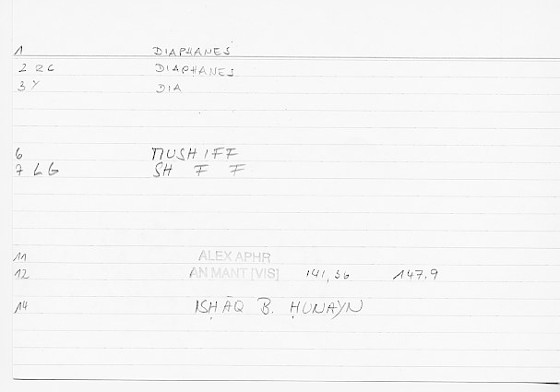 1 DIAPHANES
2 2C DIAPHANES
3 Y DIA
6 MUSHIFF
7 LG SH F F
11 ALEX APHR
12 AN MANT [VIS] 141,36 147.9
14 ISḤĀQ B. ḤUNAYN